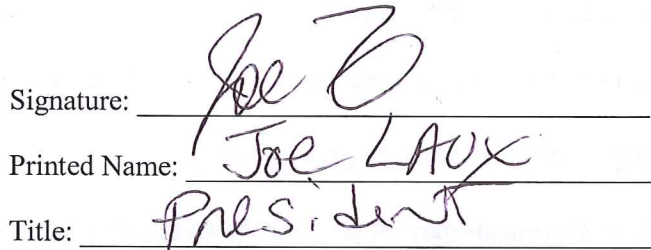 Signature: Joe
Printed Name: Joe LAUX
Title: President